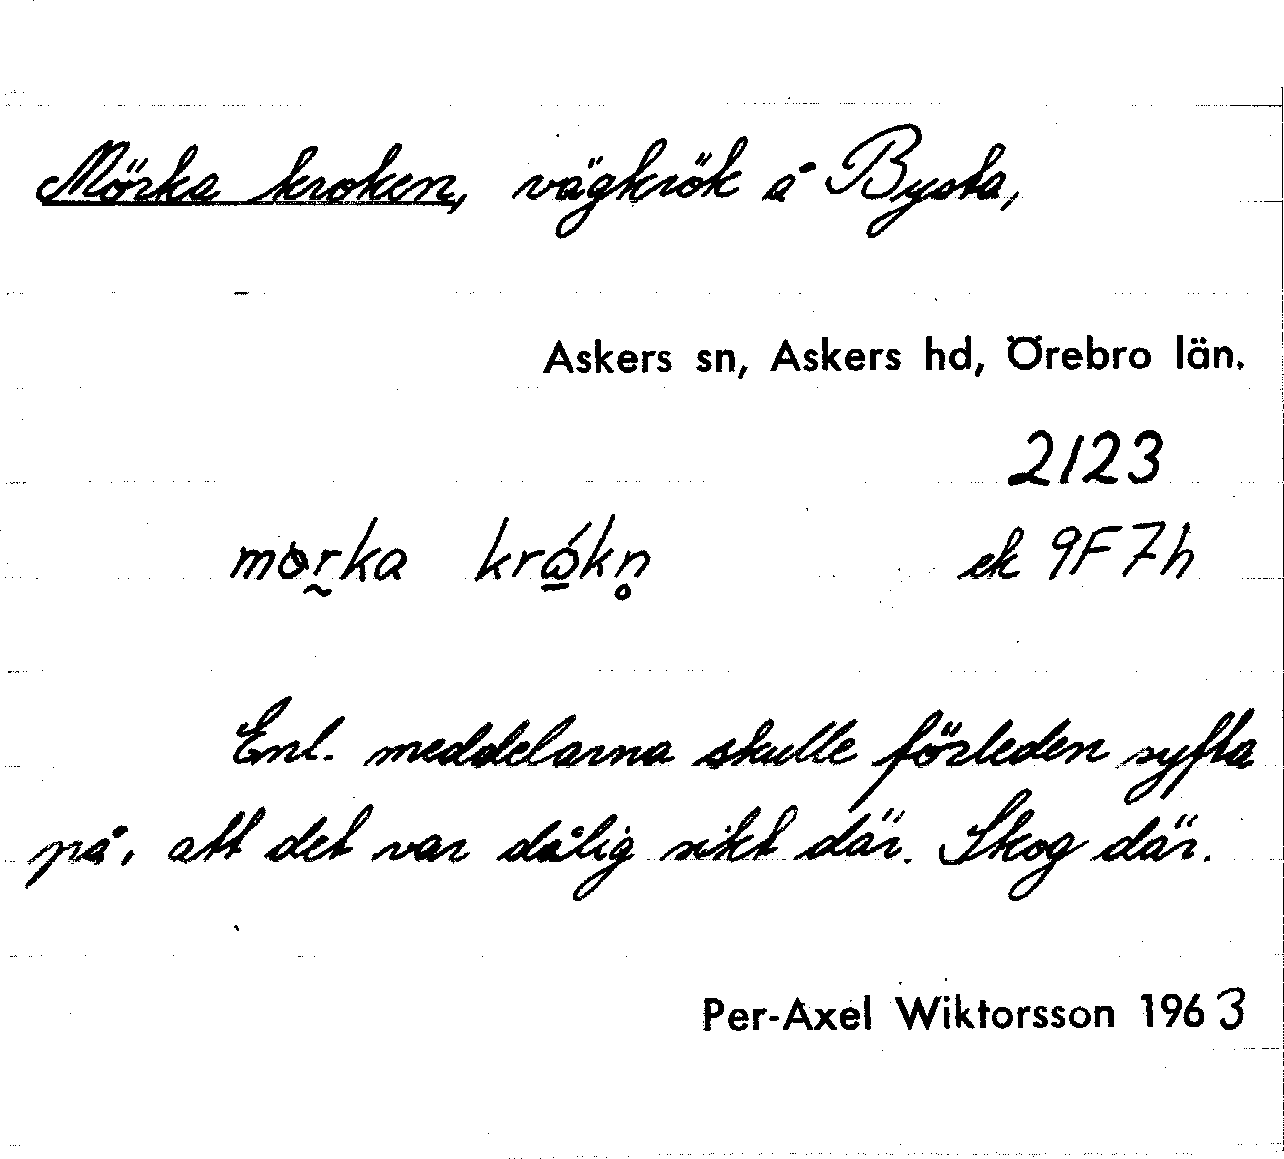 Mörka kroken, vägkrök å Bysta,
Askers sn, Askers hd, Örebro län.
2123
ek 9F7h
Enl. meddelarna skulle förleden syfta
på, att det var dålig sikt där. Skog där.
Per-Axel Wiktorsson 1963